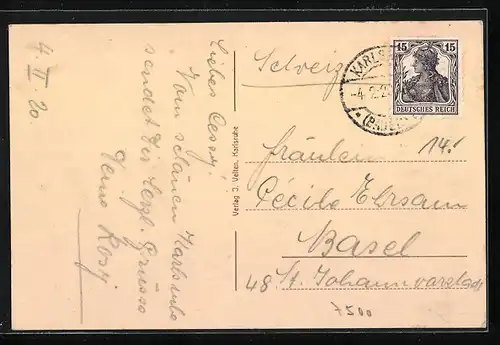 4. II. 20.
Liebes Cessy!
Vom schönen Karlsruhe
sendet Dir herzl. Grüsse
Deine Rosy
Verlag J. Velten, Karlsruhe
Schweiz
KARLS
-4.2.2
(BADEN)
15 15
DEUTSCHES REICH
14!
Fräulein
Cécile Ehrsam
Basel
48 St. Johannvorstadt
7500